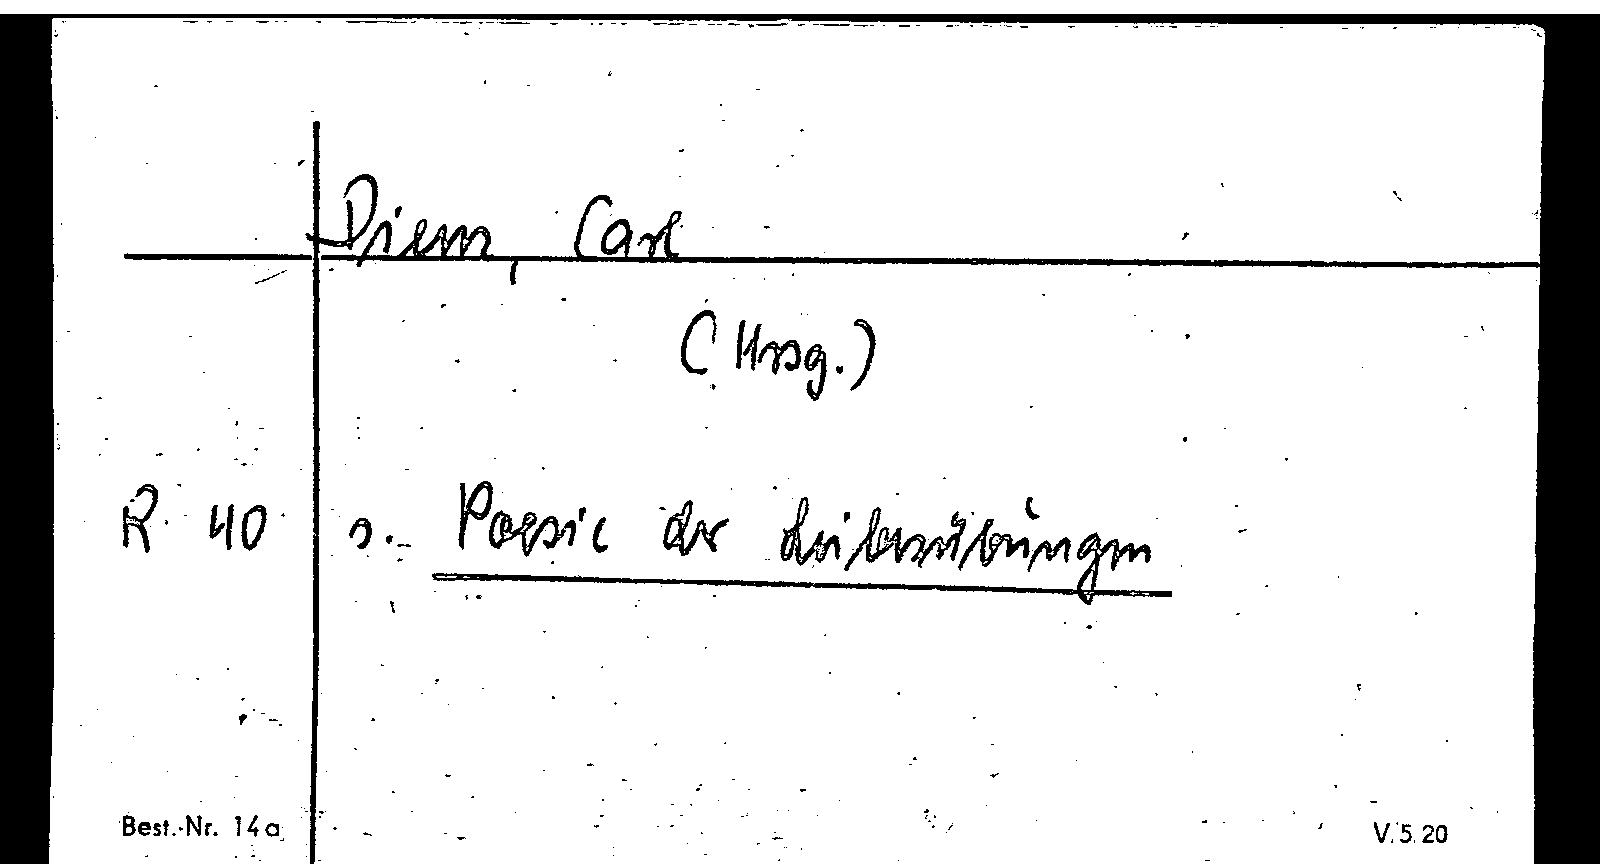 Diem, Carl
(Hrsg.)
R 40 s. Poesie der Leibesübungen
Best.-Nr. 14a V. 5. 20